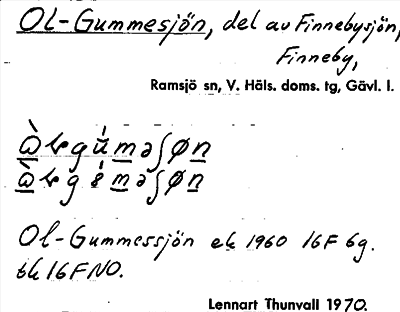 Ol-Gummesjön, del av Finnebysjön,
Finneby,
Ramsjö sn, V. Häls. doms. tg, Gävl. l.
Ol-Gummessjön ek 1960 16F 6g.
bk 16F NO.
Lennart Thunvall 1970.